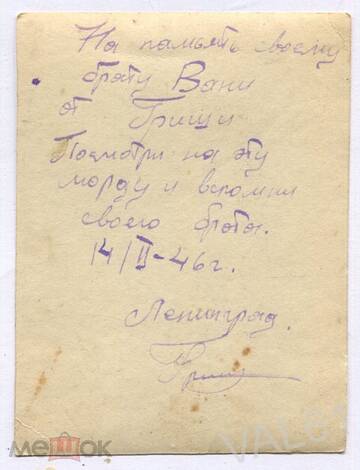 На память своему
брату Вани
от Гриши
Посмотри на эту
морду и вспомни
своего брата.
14/II-46г.
Ленинград.
Гриш
мешок
VALE